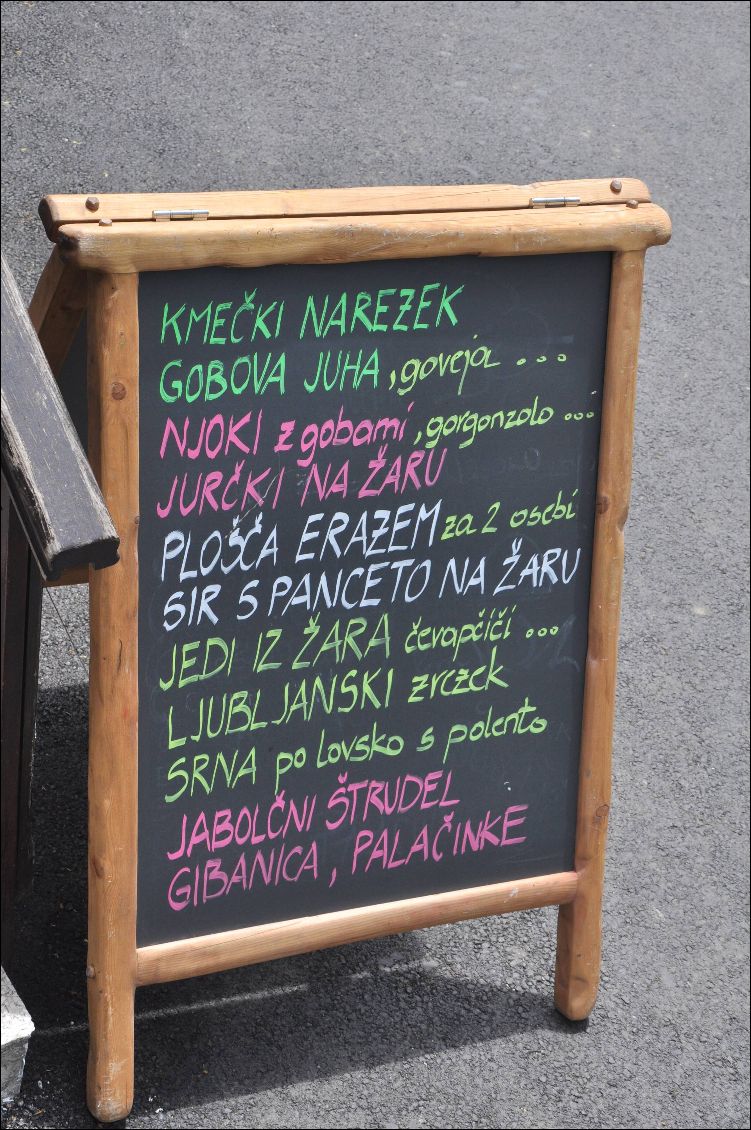 KMEČKI NAREZEK
GOBOVA JUHA, goveja ...
NJOKI z gobami, gorgonzolo ...
JURČKI NA ŽARU
PLOŠČA ERAZEM za 2 osebi
SIR S PANCETO NA ŽARU
JEDI IZ ŽARA čevapčiči ...
LJUBLJANSKI zrezek
SRNA po lovsko s polento
JABOLČNI ŠTRUDEL
GIBANICA, PALAČINKE